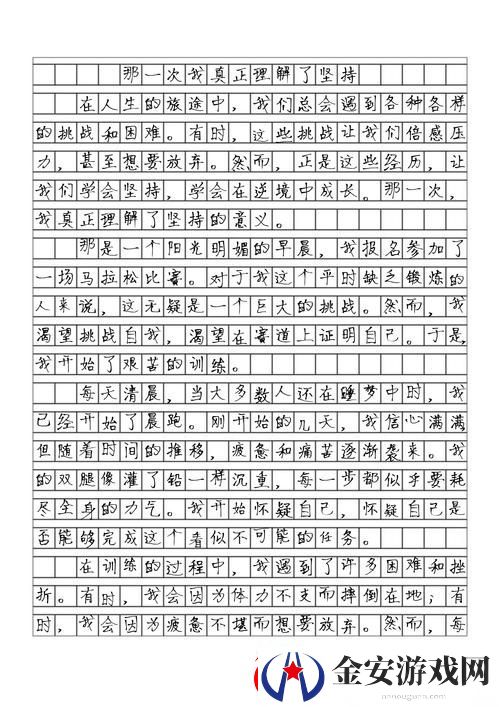 那一次我真正理解了坚持
在人生的旅途中，我们总会遇到各种各样
的挑战和困难。有时，这些挑战让我们倍感压
力，甚至想要放弃。然而，正是这些经历，让
我们学会坚持，学会在逆境中成长。那一次，
我真正理解了坚持的意义。
那是一个阳光明媚的早晨，我报名参加了
一场马拉松比赛。对于我这个平时缺乏锻炼的
人来说，这无疑是一个巨大的挑战。然而，我
渴望挑战自我，渴望在赛道上证明自己。于是，
我开始了艰苦的训练。
每天清晨，当大多数人还在睡梦中时，我
已经开始了晨跑。刚开始的几天，我信心满满，
但随着时间的推移，疲惫和痛苦逐渐袭来。我
的双腿像灌了铅一样沉重，每一步都似乎要耗
尽全身的力气。我开始怀疑自己，怀疑自己是
否能够完成这个看似不可能的任务。
在训练的过程中，我遇到了许多困难和挫
折。有时，我会因为体力不支而摔倒在地；有
时，我会因为疲惫不堪而想要放弃。然而，每
金安游戏网
annouguna.com